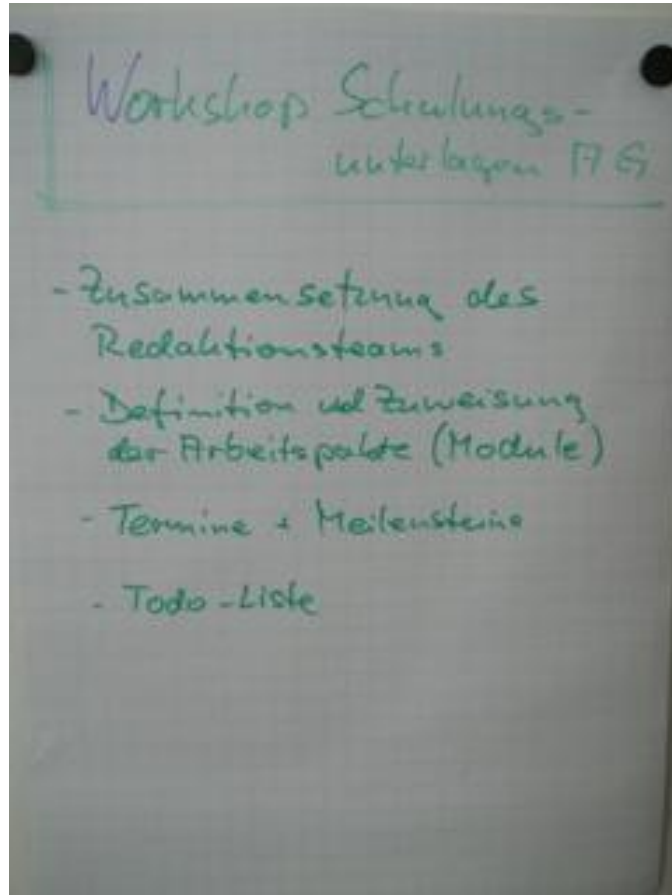 Workshop Schulungs-
unterlagen AG
- Zusammensetzung des
Redaktionsteams
- Definition und Zuweisung
der Arbeitspakete (Module)
- Termine + Meilensteine
- Todo-Liste